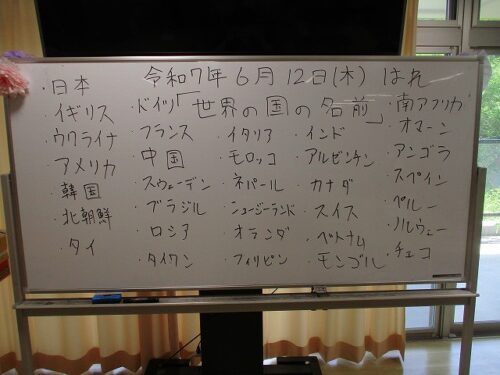 令和7年6月12日(木) はれ
「世界の国の名前」
・日本
・イギリス
・ウクライナ
・アメリカ
・韓国
・北朝鮮
・タイ
・ドイツ
・フランス
・中国
・スウェーデン
・ブラジル
・ロシア
・タイワン
・イタリア
・モロッコ
・ネパール
・ニュージーランド
・オランダ
・フィリピン
・インド
・アルゼンチン
・カナダ
・スイス
・ベトナム
・モンゴル
・南アフリカ
・オマーン
・アンゴラ
・スペイン
・ペルー
・ノルウェー
・チェコ